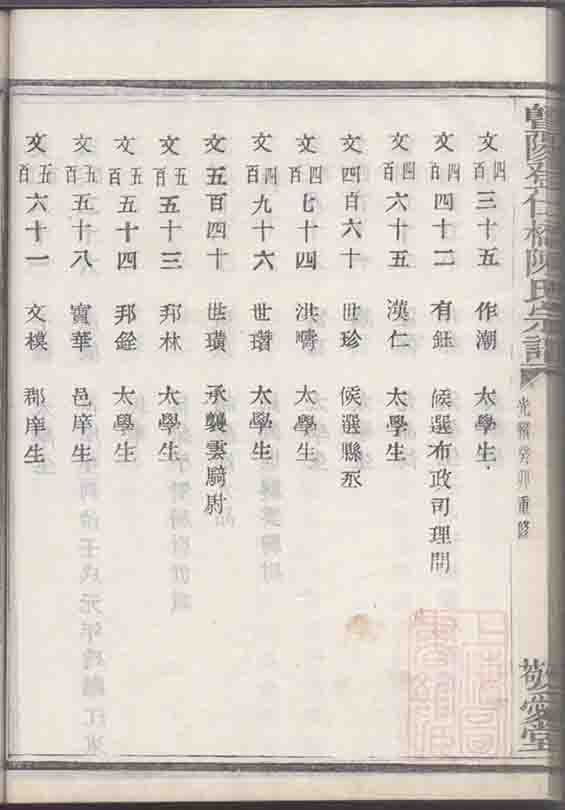 文四百三十五 作潮 太學生
文四百四十二 有鈺 候選布政司理問
文四百六十五 漢仁 太學生
文四百六十 世珍 候選縣丞
文四百七十四 洪疇 太學生
文四百九十六 世瓚 太學生
文五百四十 世璜 承襲雲騎尉
文五百五十三 邦林 太學生
文五百五十四 邦銓 太學生
文五百五十八 寶華 邑庠生
文五百六十一 文模 郡庠生
橋陳氏宗譜
光緒癸卯重修
敬愛堂
上海圖書館藏